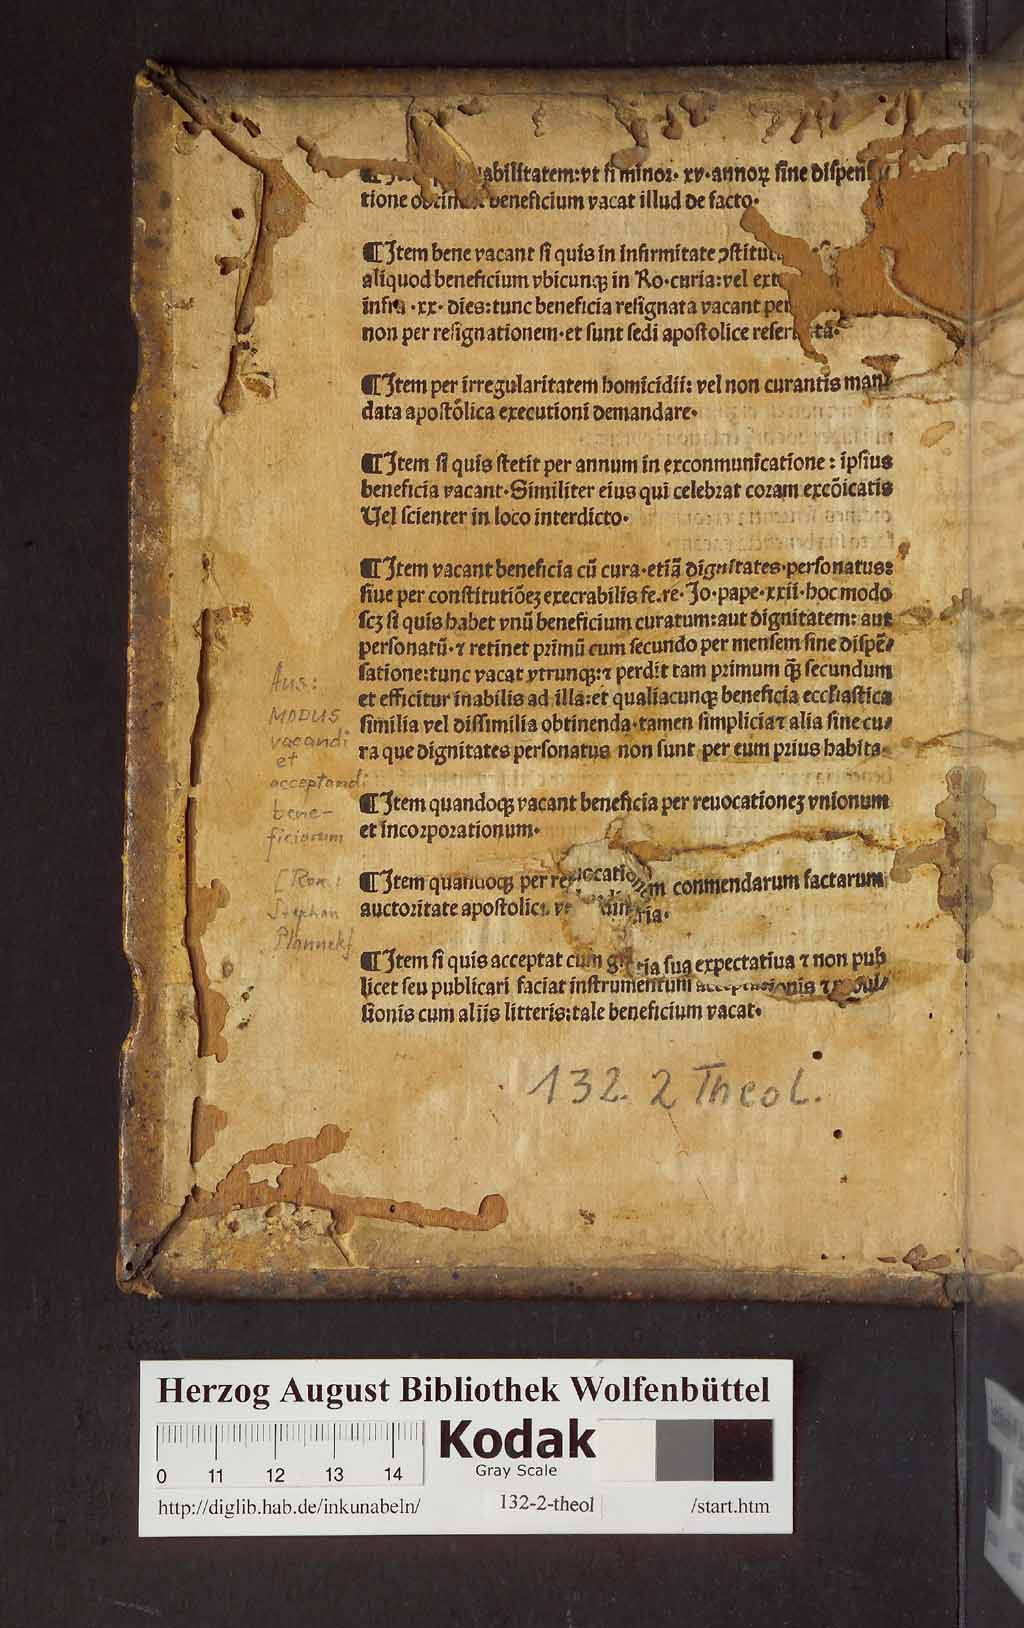 abilitatem: vt si minor· xv· annoꝝ sine dispensa
tione obtinet beneficium vacat illud de facto·
¶Item bene vacant si quis in infirmitate ꝯstitut
aliquod beneficium vbicunqꝫ in Ro·curia: vel ext
infra ·xx· dies: tunc beneficia resignata vacant per
non per resignationem· et sunt sedi apostolice reseruata·
¶Item per irregularitatem homicidii: vel non curantis man/
data apostolica executioni demandare·
¶Item si quis stetit per annum in exconmunicatione: ipsius
beneficia vacant· Similiter eius qui celebrat coram excōicatis
Uel scienter in loco interdicto·
¶Item vacant beneficia cū cura· etiā dignitates· personatus:
siue per constitutiōeꝫ execrabilis fe. re· Jo· pape· xxii· hoc modo
scꝫ si quis habet vnū beneficium curatum: aut dignitatem: aut
personatū· ⁊ retinet primū cum secundo per mensem sine dispē/
satione: tunc vacat vtrunqꝫ: ⁊ perdit tam primum qꝫ̄ secundum
et efficitur inabilis ad illa: et qualiacunqꝫ beneficia eccl̄iastica
similia vel dissimilia obtinenda· tamen simplicia ⁊ alia sine cu/
ra que dignitates personatus non sunt per eum prius habita·
¶Item quandoqꝫ vacant beneficia per reuocationeꝫ vnionum
et incorporationum·
¶Item quandoqꝫ per reuocationem conmendarum factarum
auctoritate apostolica
¶Item si quis acceptat cum gratia sua expectatiua ⁊ non pub
licet seu publicari faciat instrumentum acceptationis ⁊ prouis/
sionis cum aliis litteris: tale beneficium vacat·
Aus:
MODUS
vacandi
et
acceptandi
bene-
ficiorum
[Rom:
Stephan
Plannck]
132. 2 Theol.
Herzog August Bibliothek Wolfenbüttel
Kodak
Gray Scale
0 11 12 13 14
http://diglib.hab.de/inkunabeln/ 132-2-theol /start.htm